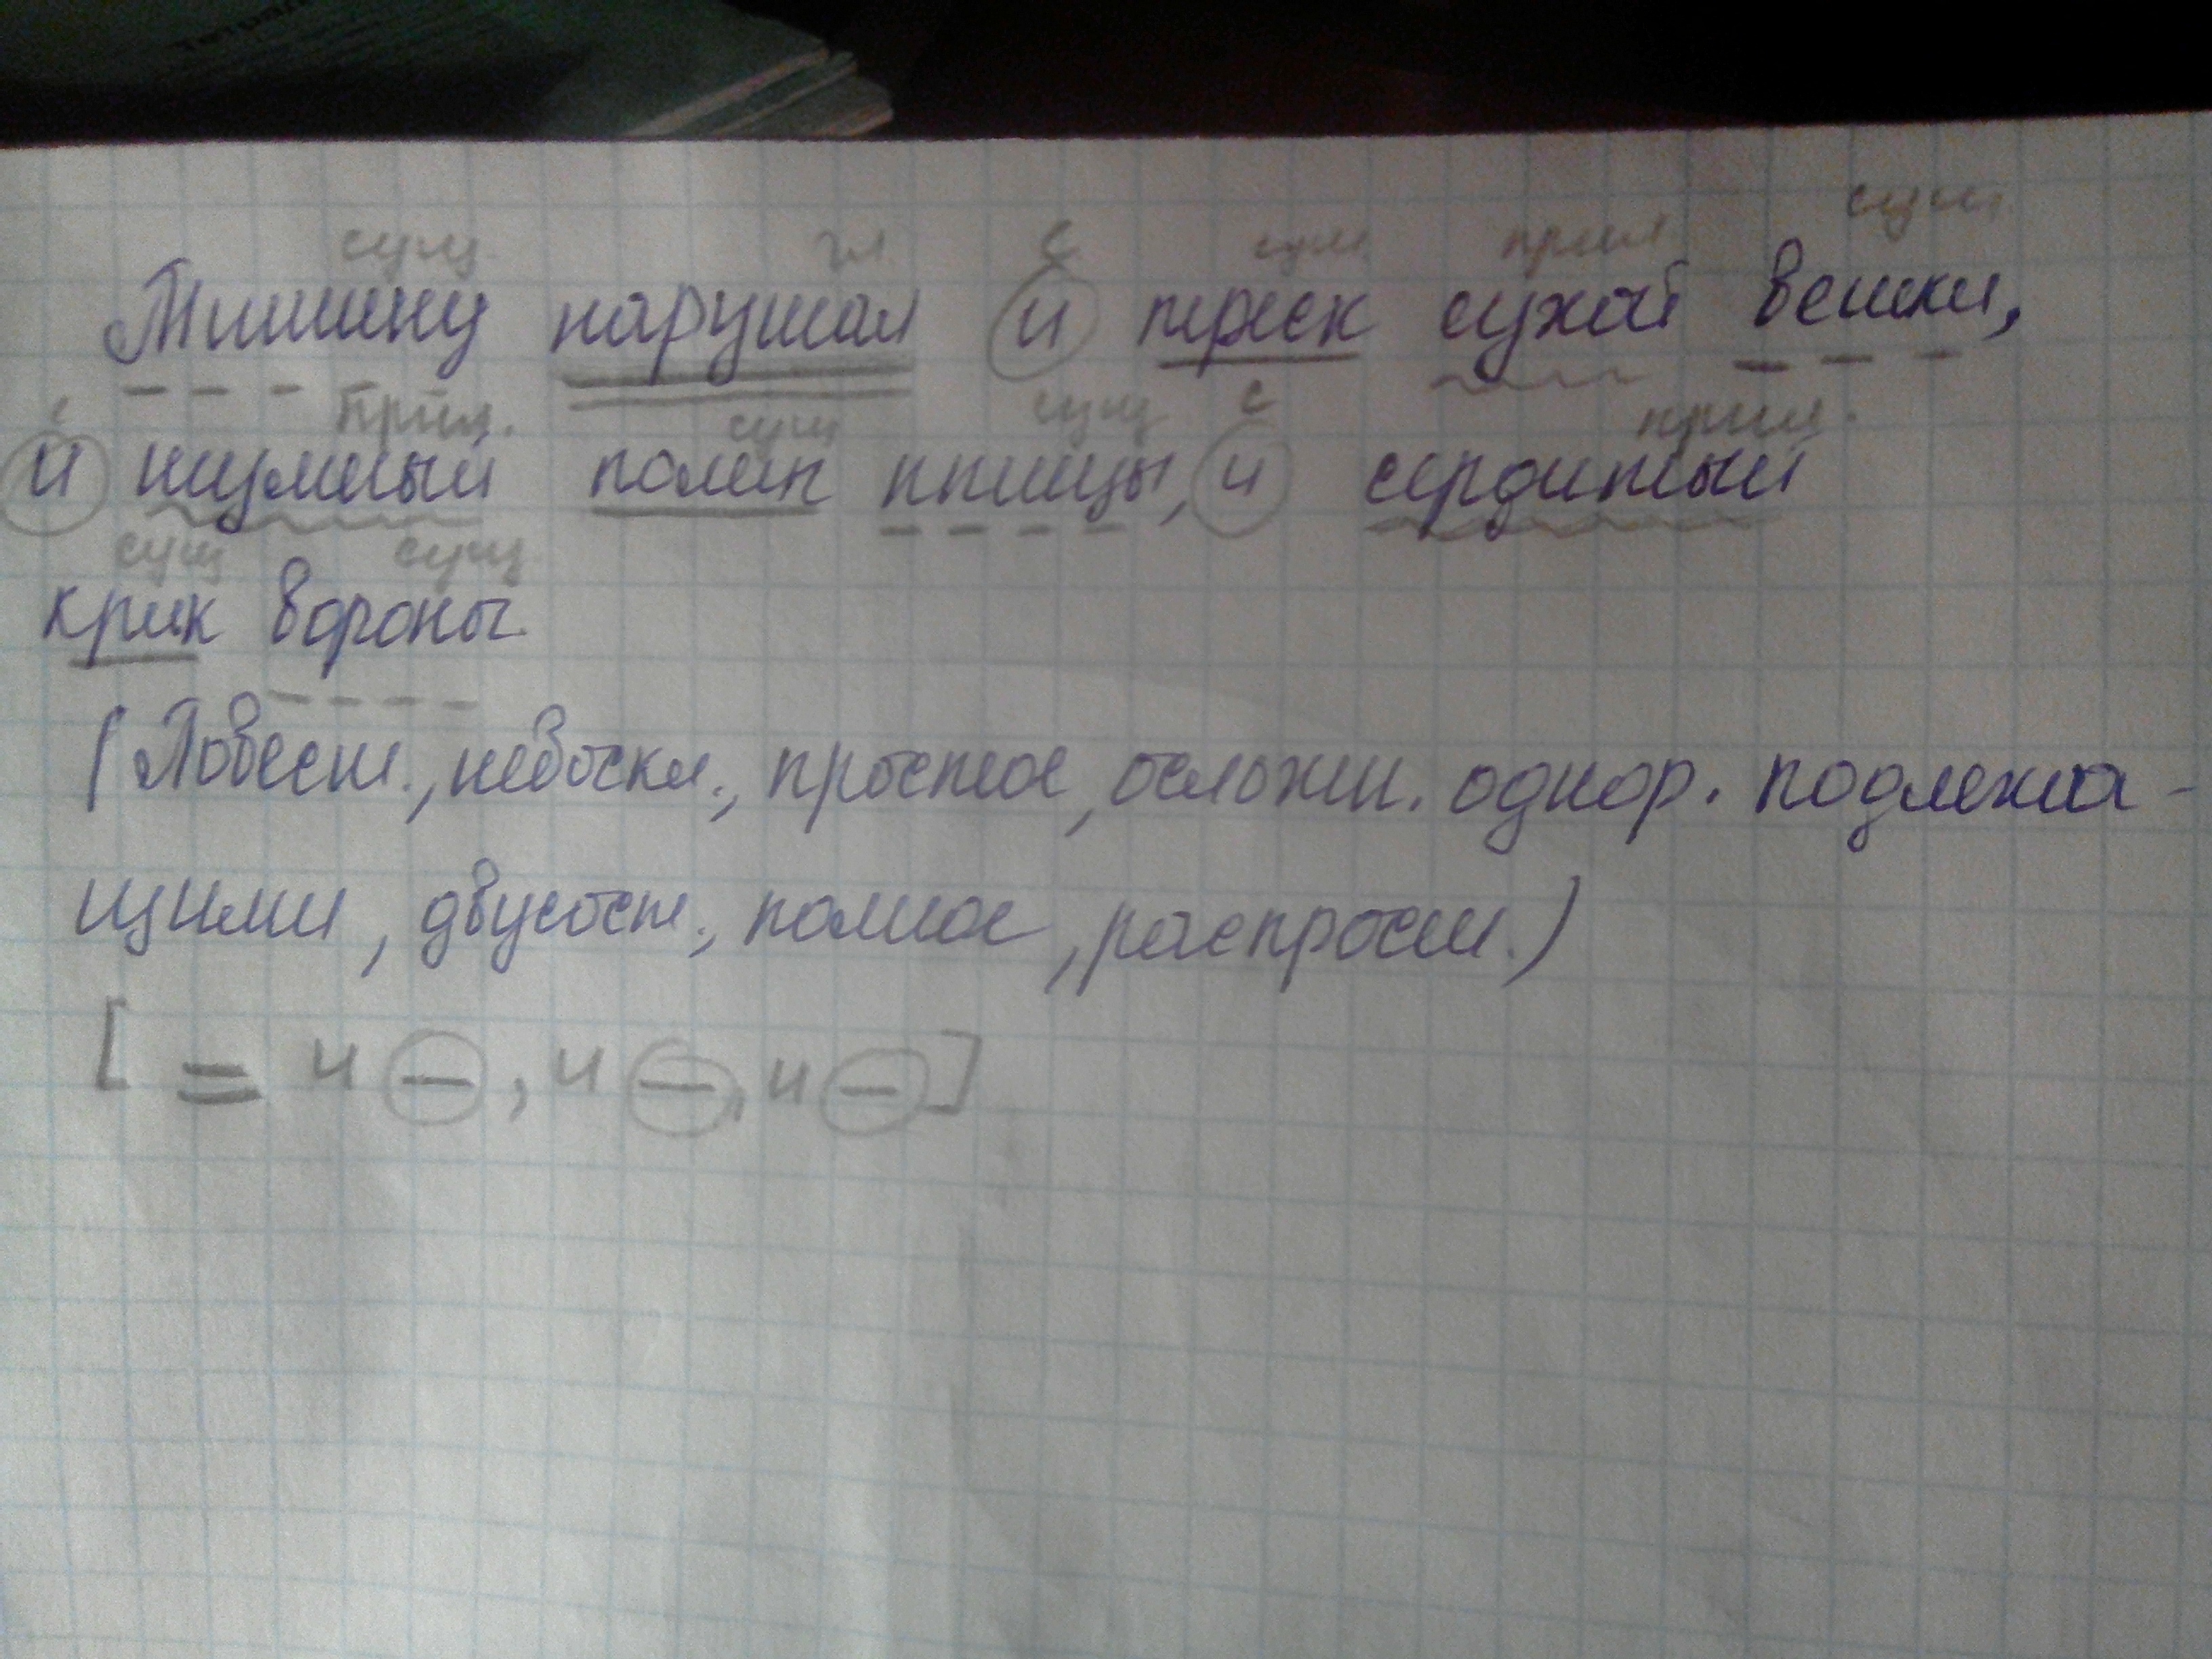 Тетрад
сущ. гл. с сущ. прил. сущ.
Тишину нарушал и треск сухой ветки,
с прил. сущ сущ с прил.
и шумный полёт птицы, и сердитый
сущ сущ
крик вороны
(Повест., невоскл., простое, осложн. однор. подлежа-
щими, двусост., полное, распрост.)
[ = и —, и —, и — ]